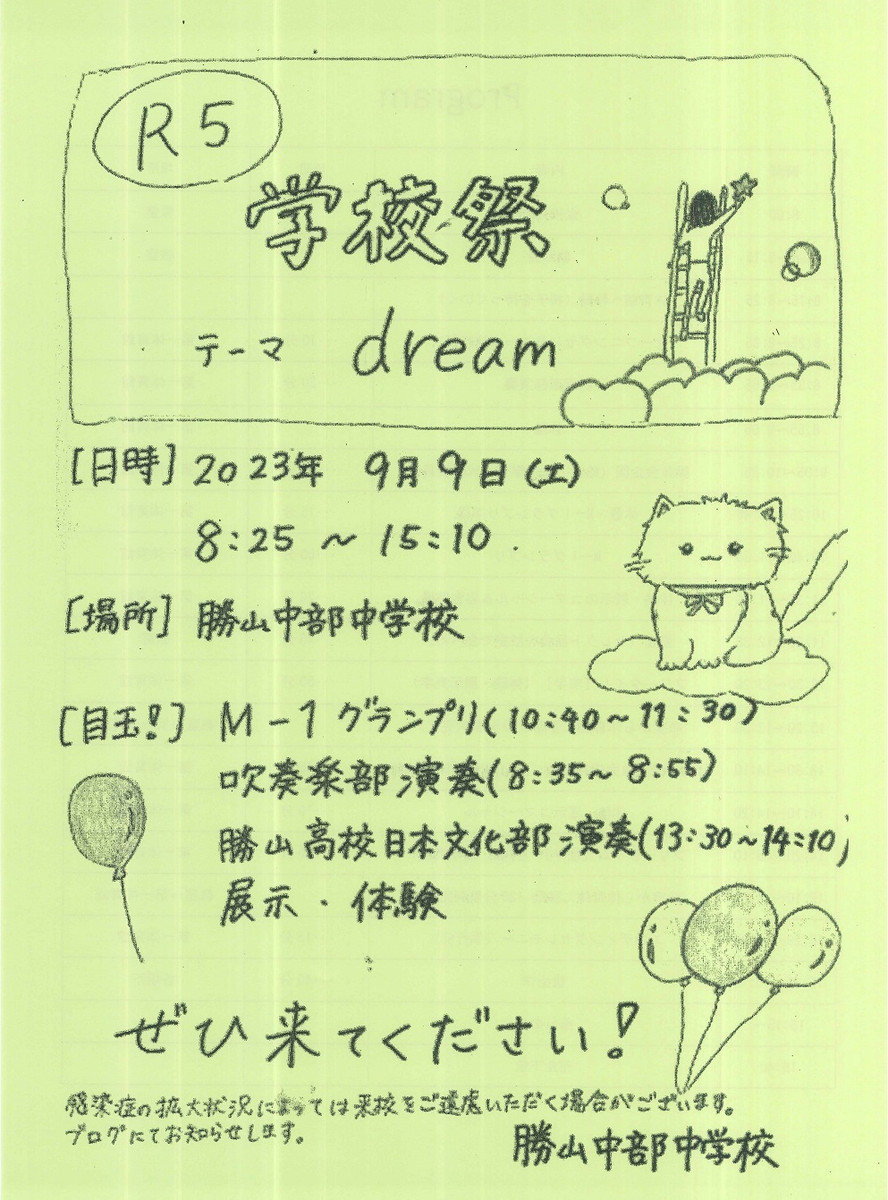 R5
学校祭
テーマ dream
[日時] 2023年 9月9日(土)
8:25 ～ 15:10
[場所] 勝山中部中学校
[目玉!] M-1 グランプリ(10:40～11:30)
吹奏楽部 演奏(8:35～8:55)
勝山高校日本文化部 演奏(13:30～14:10)
展示・体験
ぜひ来てください!
感染症の拡大状況によっては来校をご遠慮いただく場合がございます。
ブログにてお知らせします。
勝山中部中学校